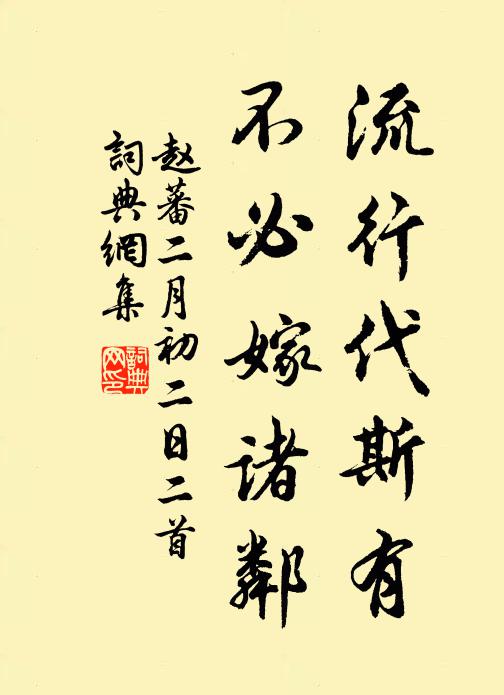 流行代斯有
不必嫁诸鄰
赵蕃二月初二日二首
詞典網集
詞典网印